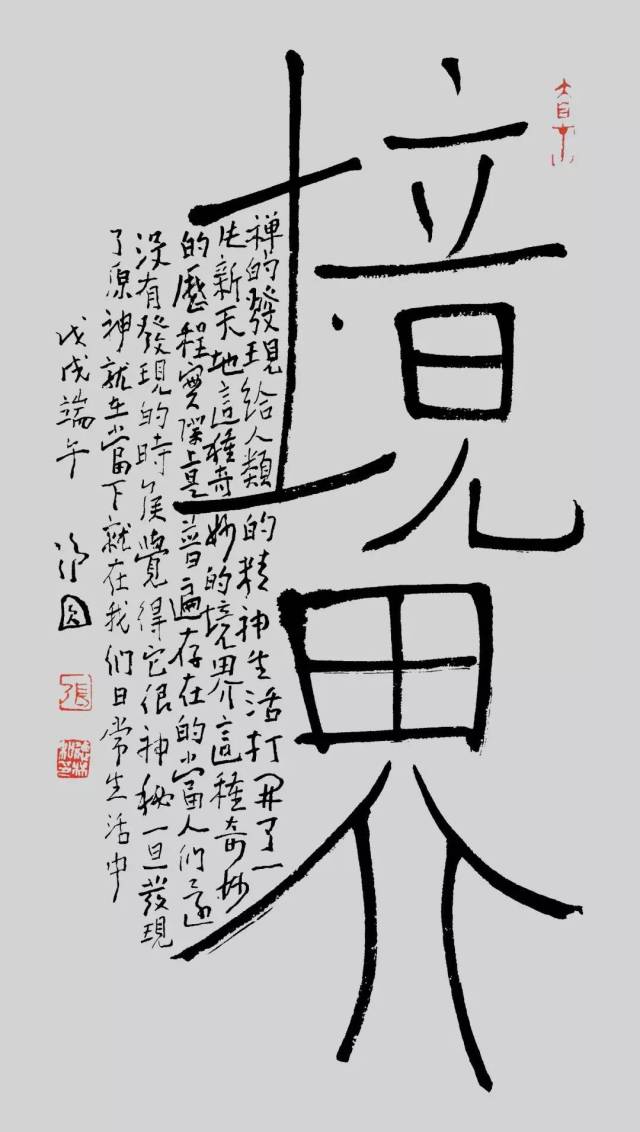 境界
禅的發現給人類的精神生活打開了一
片新天地這種奇妙的境界這種奇妙
的歷程實際上是普遍存在的當人們還
沒有發現的時候覺得它很神秘一旦發現
了原神就在當下就在我們日常生活中
戊戌端午
張